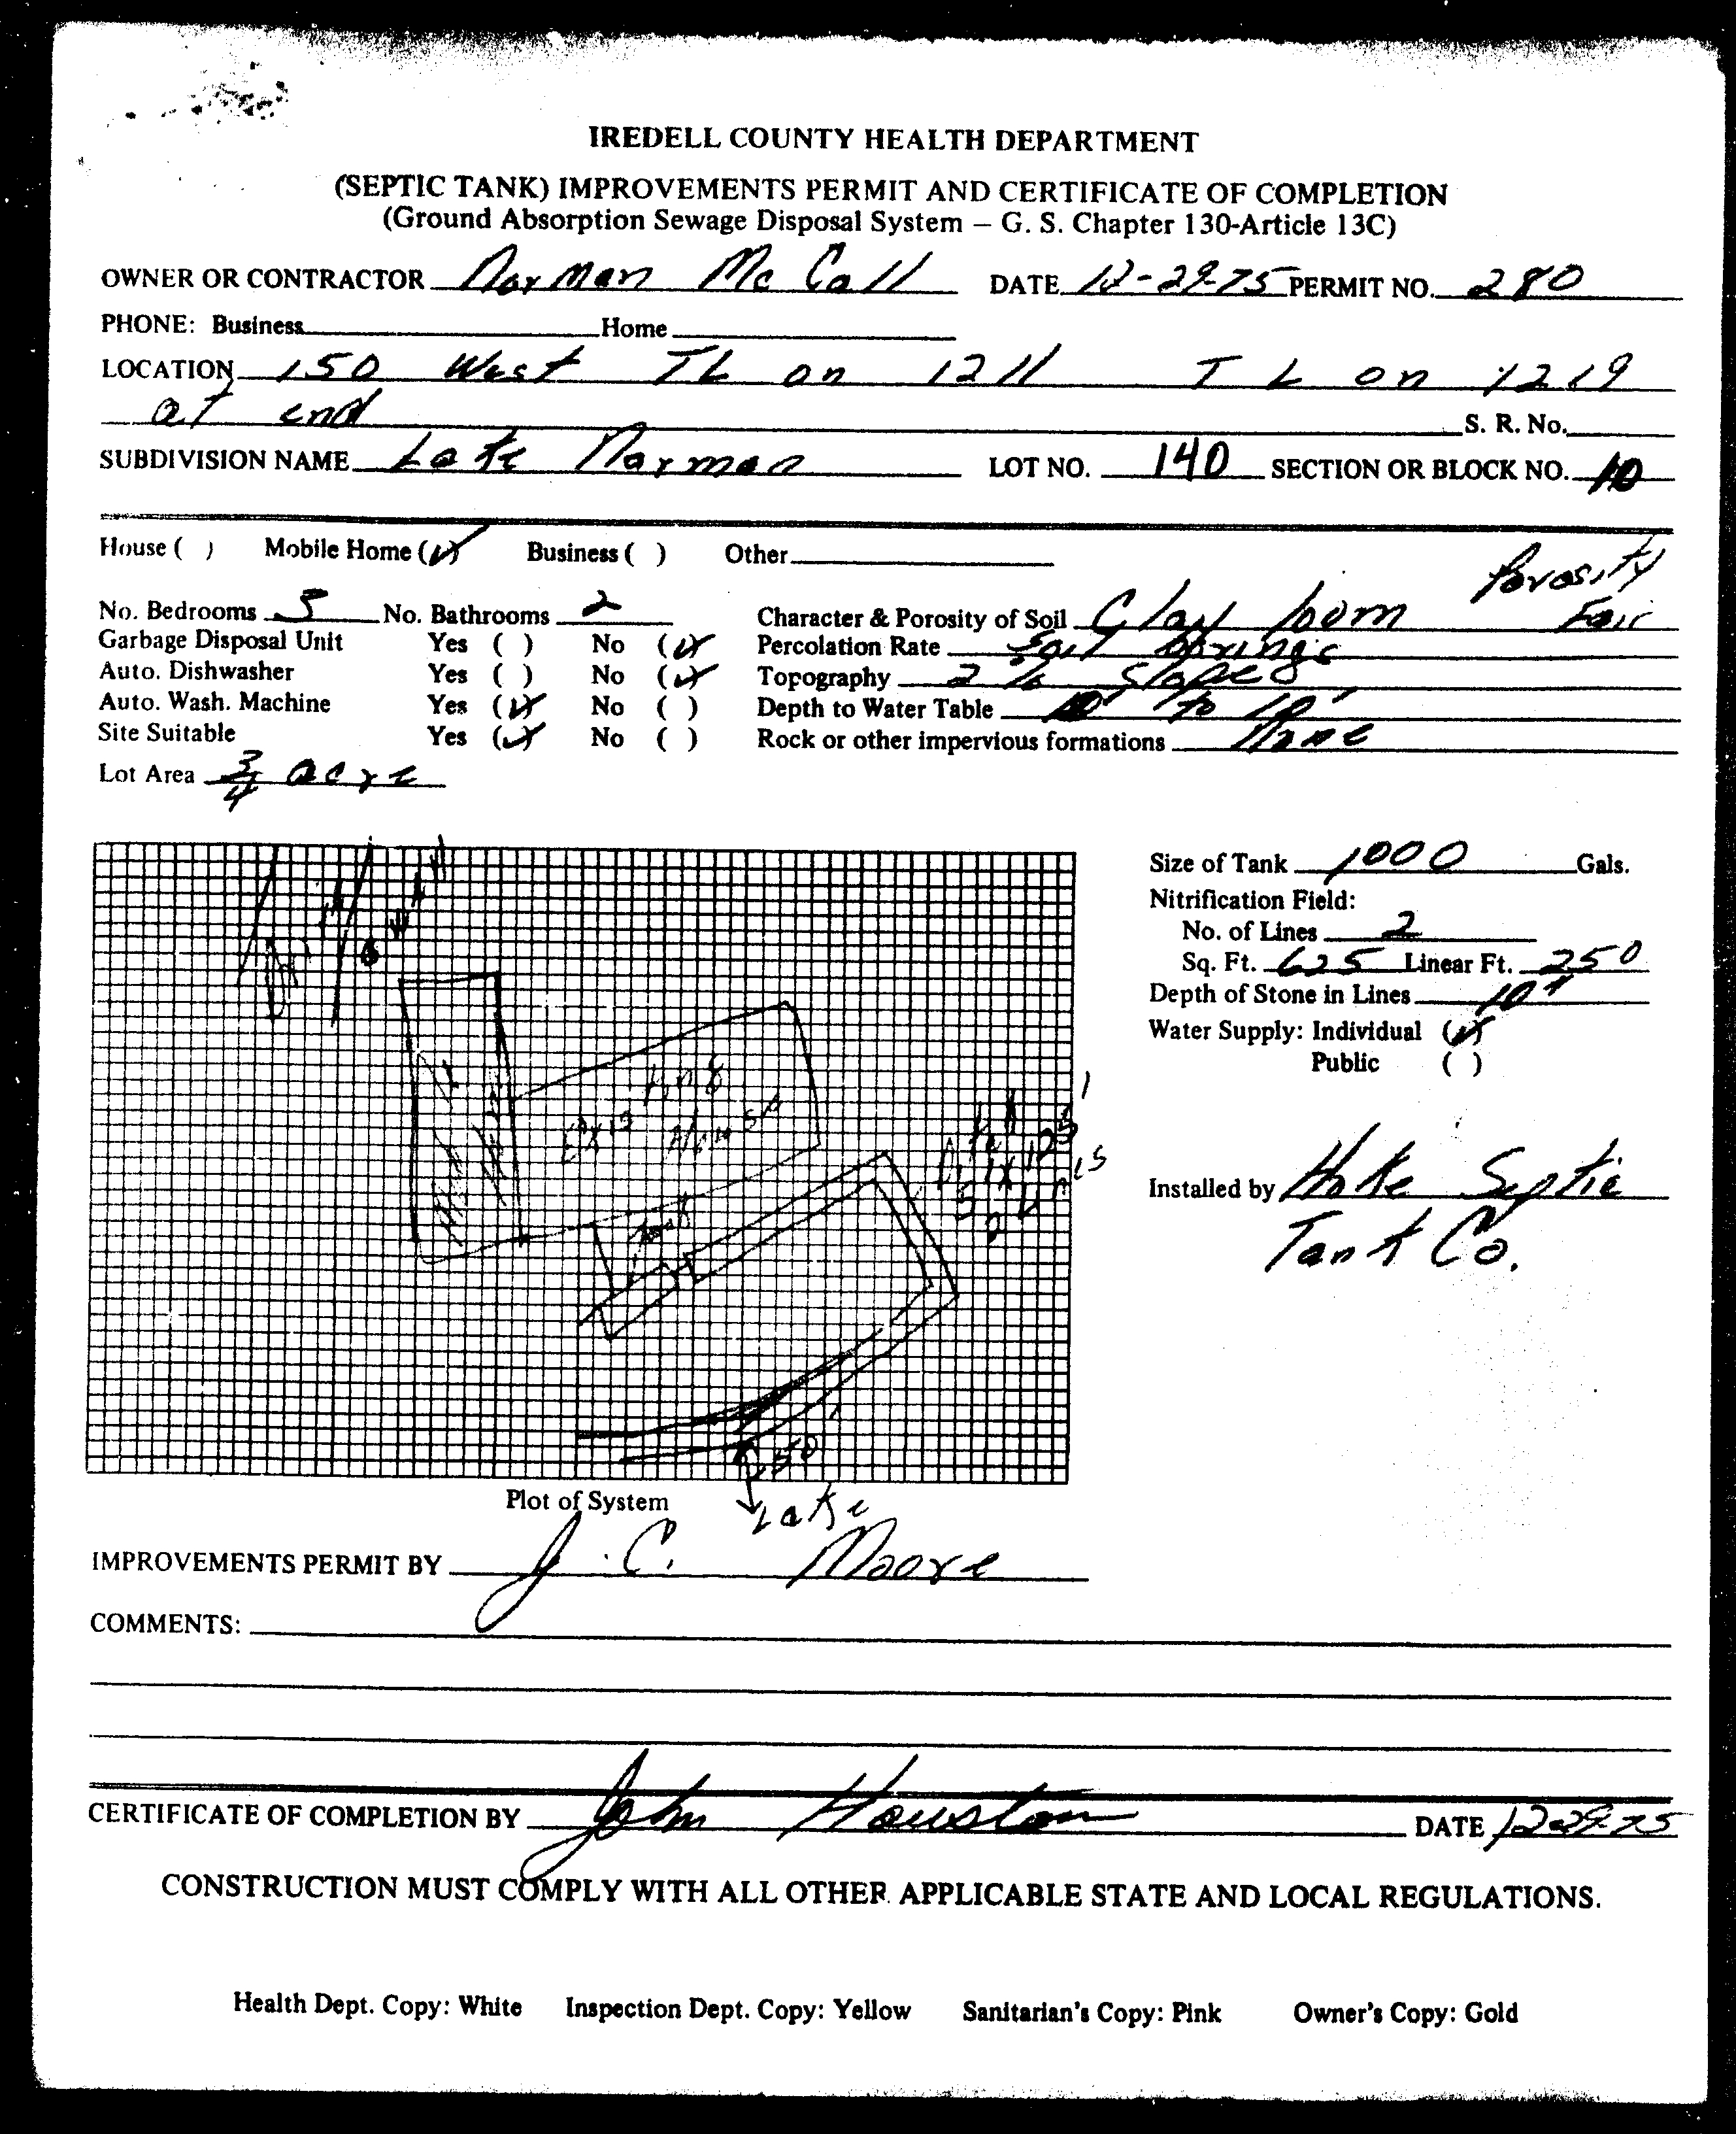 IREDELL COUNTY HEALTH DEPARTMENT
(SEPTIC TANK) IMPROVEMENTS PERMIT AND CERTIFICATE OF COMPLETION
(Ground Absorption Sewage Disposal System – G. S. Chapter 130-Article 13C)
OWNER OR CONTRACTOR Norman McCall DATE 12-29-75 PERMIT NO. 280
PHONE: Business Home
LOCATION 150 West TL on 1211 TL on 1219
at end S. R. No.
SUBDIVISION NAME Lake Norman LOT NO. 140 SECTION OR BLOCK NO. 10
House ( ) Mobile Home (✓) Business ( ) Other
Porosity
No. Bedrooms No. Bathrooms 2 Character & Porosity of Soil Clay loam Fair
Garbage Disposal Unit Yes ( ) No (✓) Percolation Rate Soil Borings
Auto. Dishwasher Yes ( ) No (✓) Topography 2 % Slopes
Auto. Wash. Machine Yes (✓) No ( ) Depth to Water Table to 10'
Site Suitable Yes (✓) No ( ) Rock or other impervious formations None
Lot Area 3/4 acre
Size of Tank 1000 Gals.
Nitrification Field:
No. of Lines 2
Sq. Ft. 625 Linear Ft. 250
Depth of Stone in Lines 10"
Water Supply: Individual (✓)
Public ( )
Installed by Hoke Septic
Tank Co.
Tank
50'
Lake
Plot of System
IMPROVEMENTS PERMIT BY J. C. Moore
COMMENTS:
CERTIFICATE OF COMPLETION BY John Houston DATE 12-29-75
CONSTRUCTION MUST COMPLY WITH ALL OTHER APPLICABLE STATE AND LOCAL REGULATIONS.
Health Dept. Copy: White Inspection Dept. Copy: Yellow Sanitarian's Copy: Pink Owner's Copy: Gold